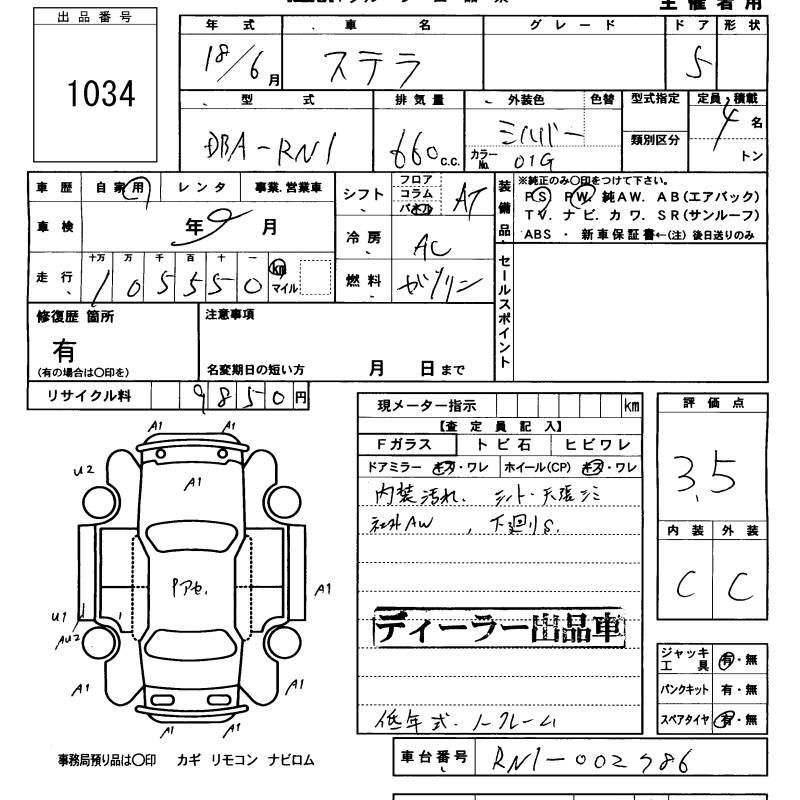 出品番号
1034
主催者用
年式 車名 グレード ドア 形状
18/6月 ステラ 5
型式 排気量 外装色 色替 型式指定 定員・積載
DBA-RN1 660c.c. シルバー 類別区分 4名
カラーNo. 01G トン
車歴 自家用 レンタ 事業・営業車
車検 年9月
走行 十万 万 千 百 十 一
105550 km マイル
シフト フロア コラム パネル AT
冷房 AC
燃料 ガソリン
装備品
※純正のみ○印をつけて下さい。
PS PW. 純AW. AB(エアバック)
TV. ナビ. カワ. SR(サンルーフ)
ABS ・ 新車保証書←(注)後日送りのみ
セールスポイント
修復歴 箇所
有
(有の場合は○印を)
注意事項
名変期日の短い方 月 日まで
リサイクル料 9850円
現メーター指示 km
【査定員記入】
Fガラス トビ石 ヒビワレ
ドアミラー キズ・ワレ ホイール(CP) キズ・ワレ
内装汚れ、シート・天張シミ
社外AW、下廻りS.
ディーラー出品車
低年式・ノークレーム
評価点
3.5
内装 外装
C C
ジャッキ工具 有・無
パンクキット 有・無
スペアタイヤ 有・無
A1 A1
U2
A1
Pアセ.
A1
U1
AU2
A1 A1
A1 A1
事務局預り品は○印 カギ リモコン ナビロム
車台番号 RN1-002786